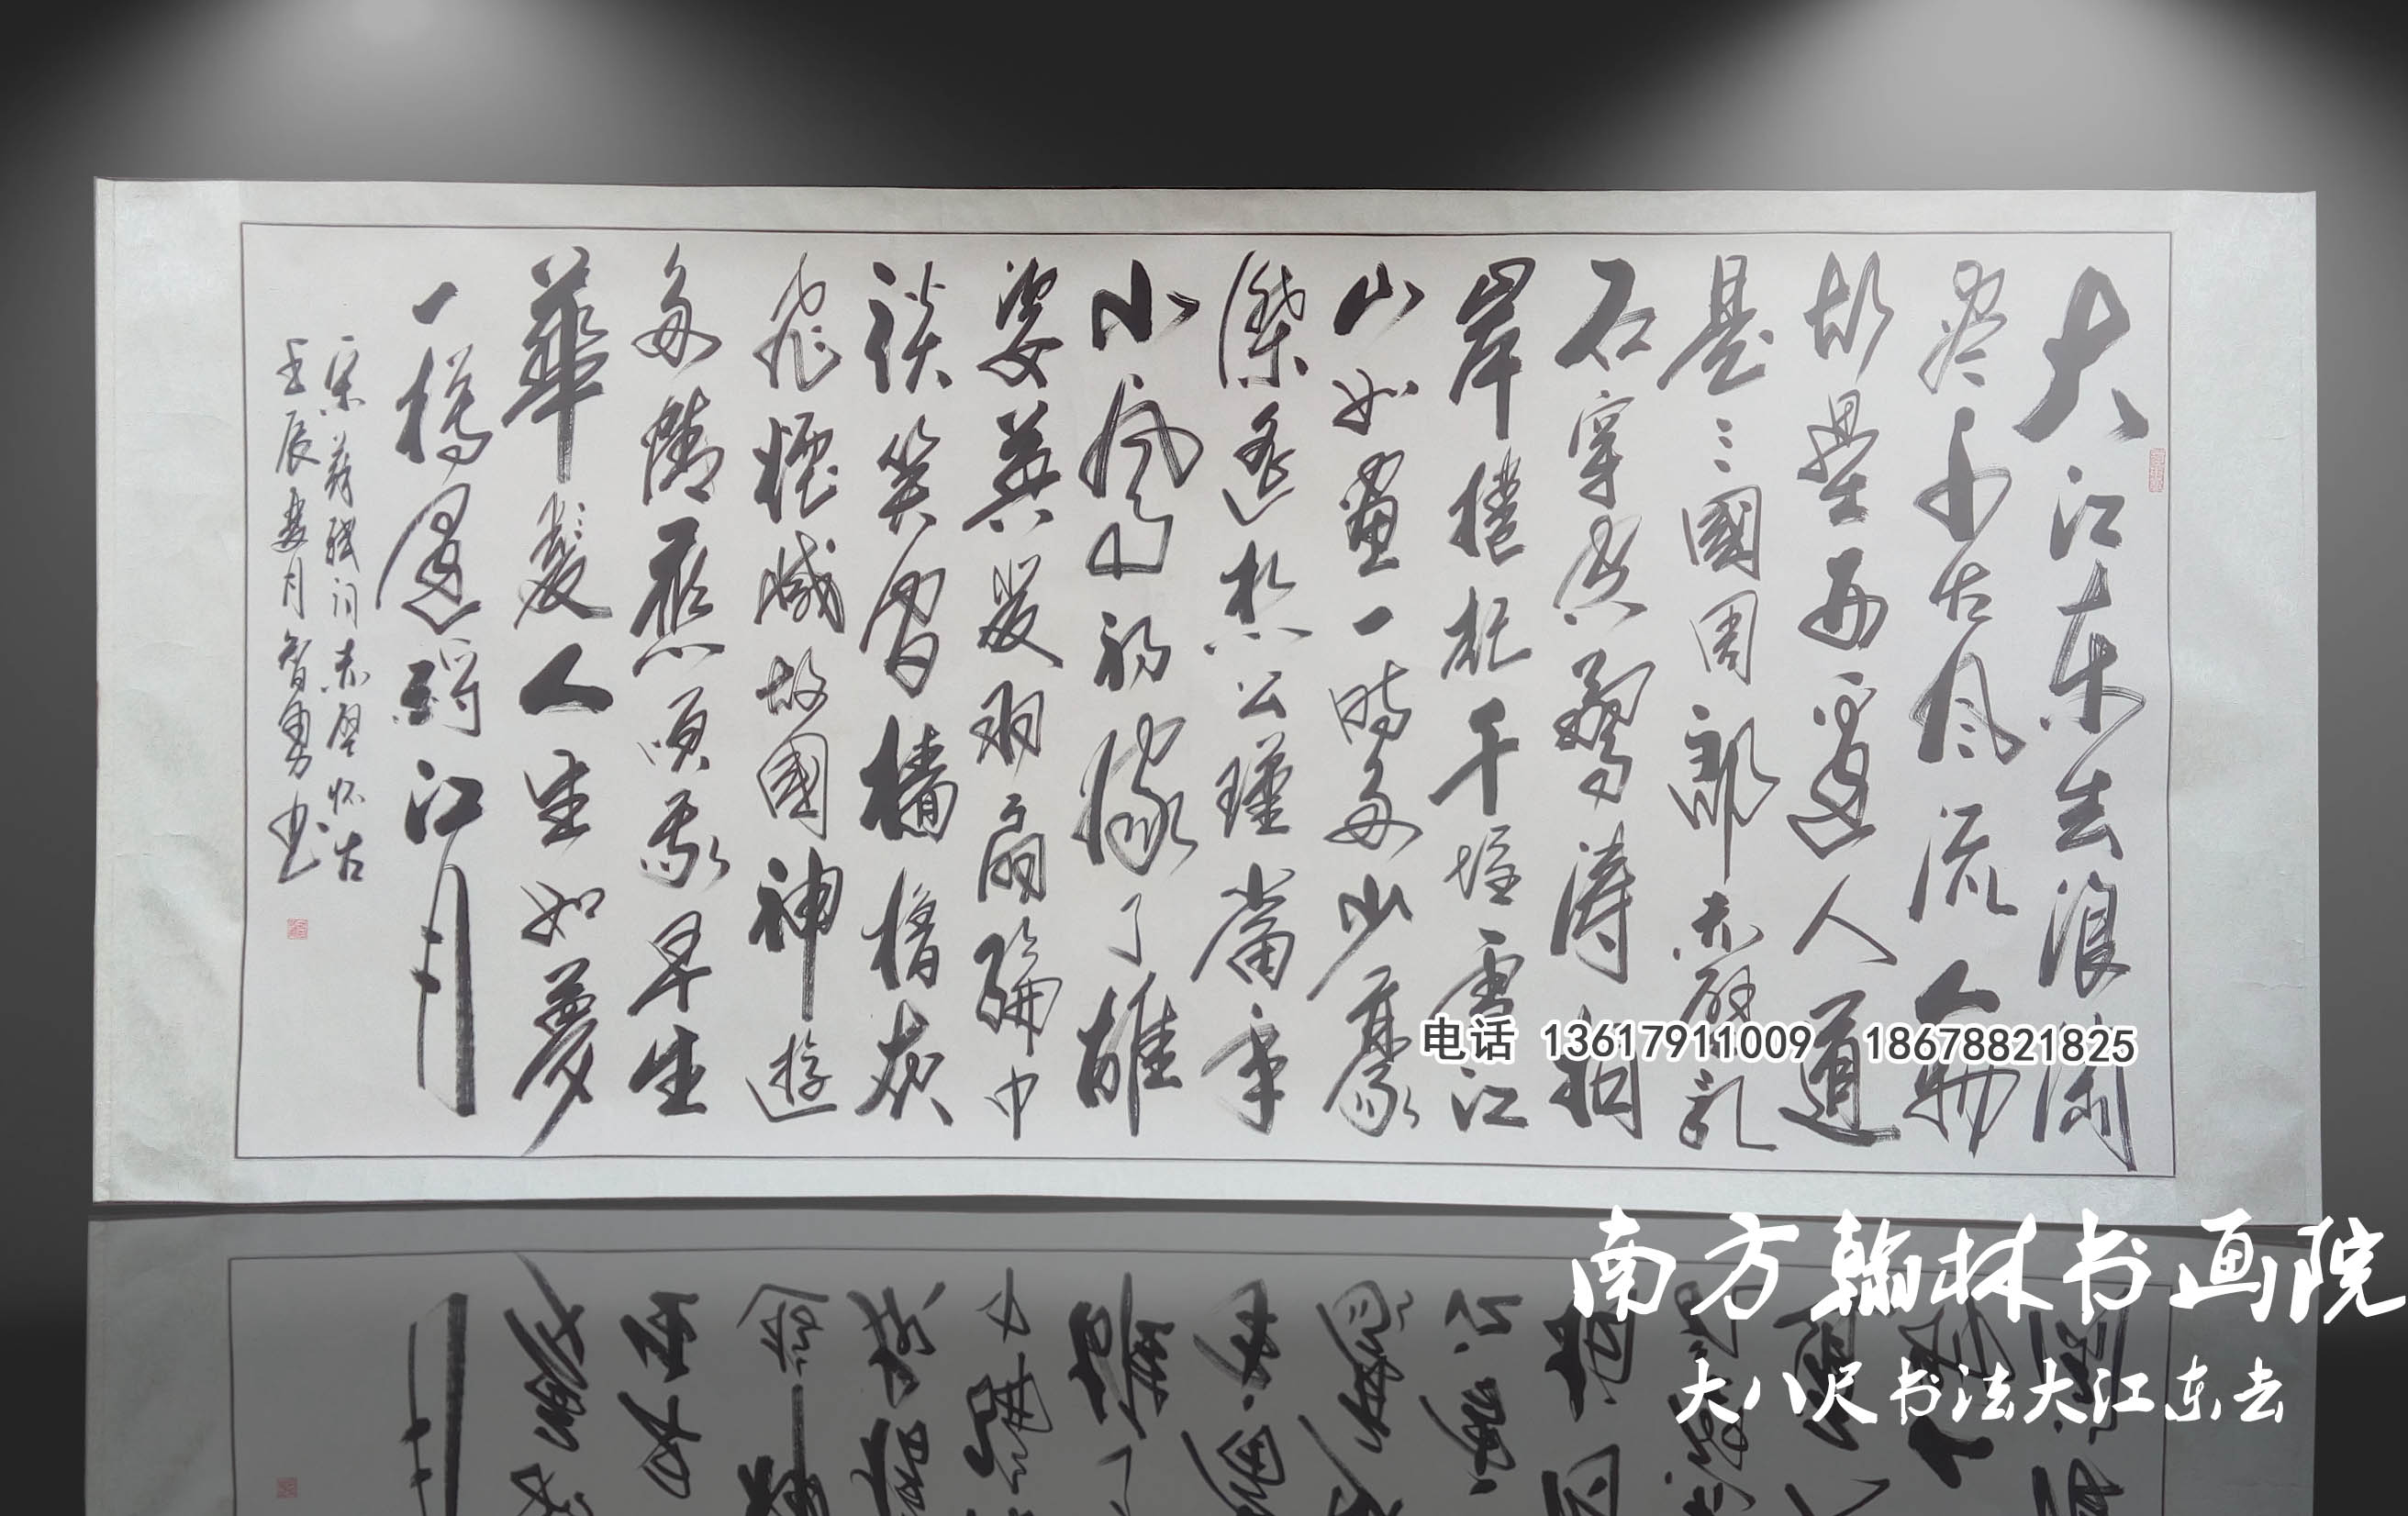 大江东去浪淘
尽千古风流人物
故壘西邊人道
是三國周郎赤壁乱
石穿空驚涛拍
岸捲起千堆雪江
山如畫一時多少豪
傑遥想公瑾當年
小喬初嫁了雄
姿英发羽扇綸巾
談笑間檣橹灰
飛煙滅故國神遊
多情應笑我早生
華髮人生如夢
一樽還酹江月
宋苏轼词赤壁怀古
壬辰夏月智勇书
电话 13617911009 18678821825
南方翰林书画院
大八尺书法大江东去